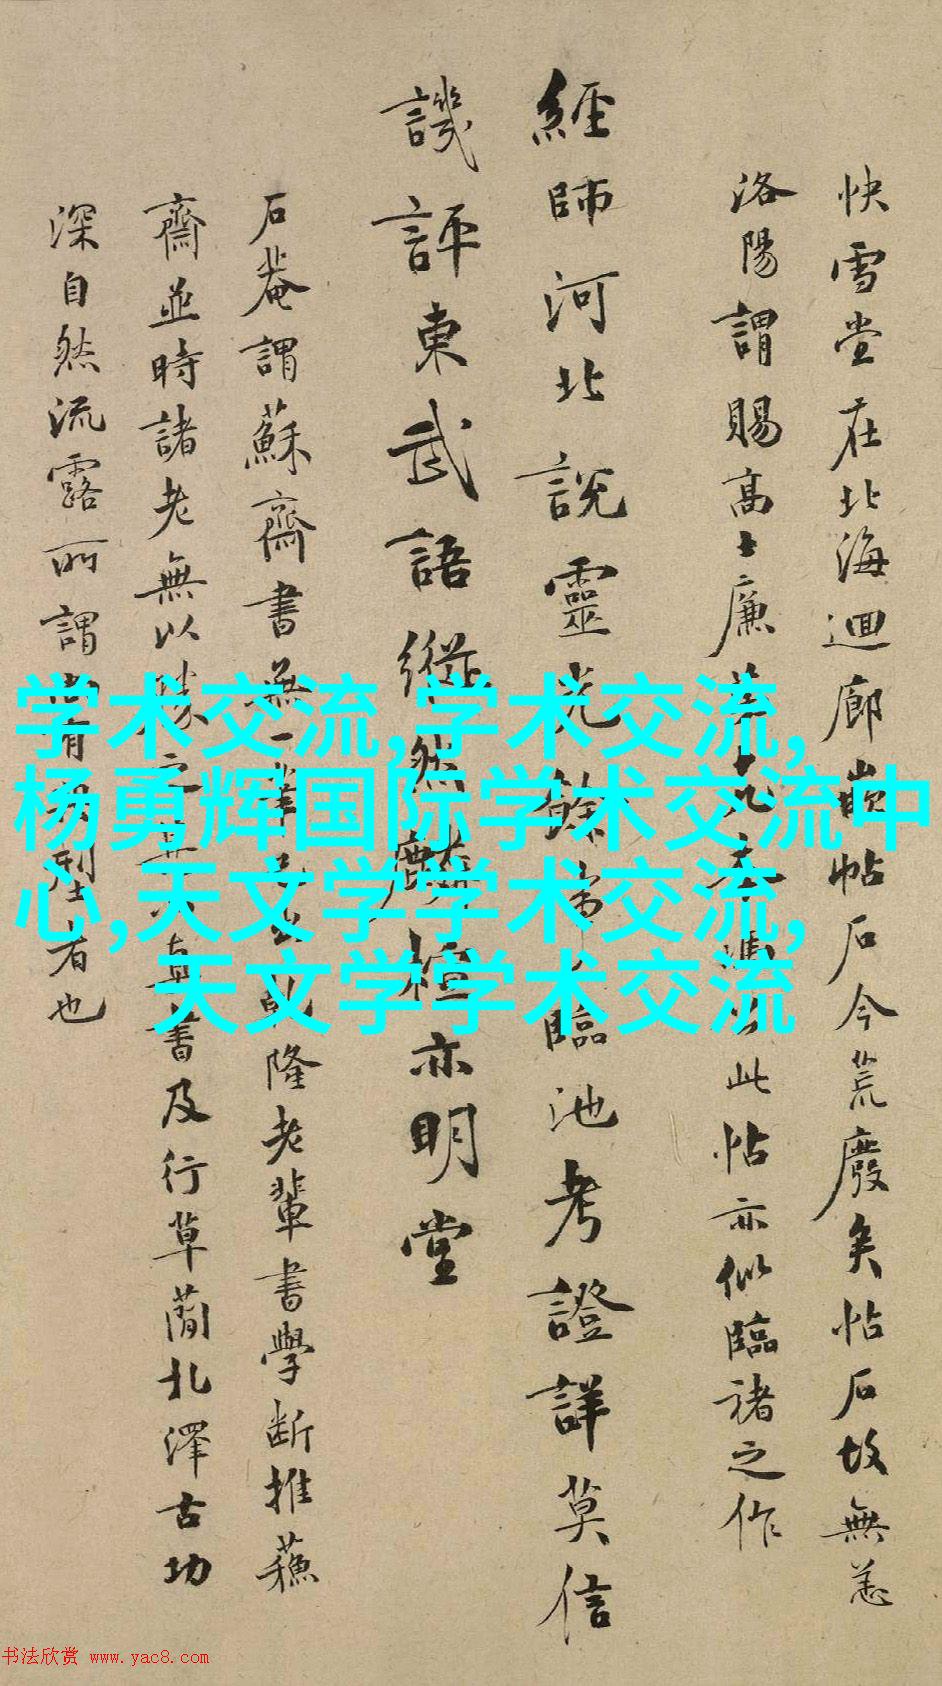 快雪堂在北海迴廊嵌帖石今荒廢矣帖石故無恙
洛陽謂賜高士廉此帖亦似臨褚之作
經師河北說靈光餘事臨池考證詳莫信
譏評東武語縱然麤櫃亦明堂
石菴謂蘇齋書無一筆隆老輩書學斷推蘇
齋並時諸老無以真書及行草蘭北澤古功
深自然流露所謂有者也
学术交流,学术交流,
杨勇辉国际学术交流中
心,天文学学术交流,
天文学学术交流
书法欣赏 www.yac8.com